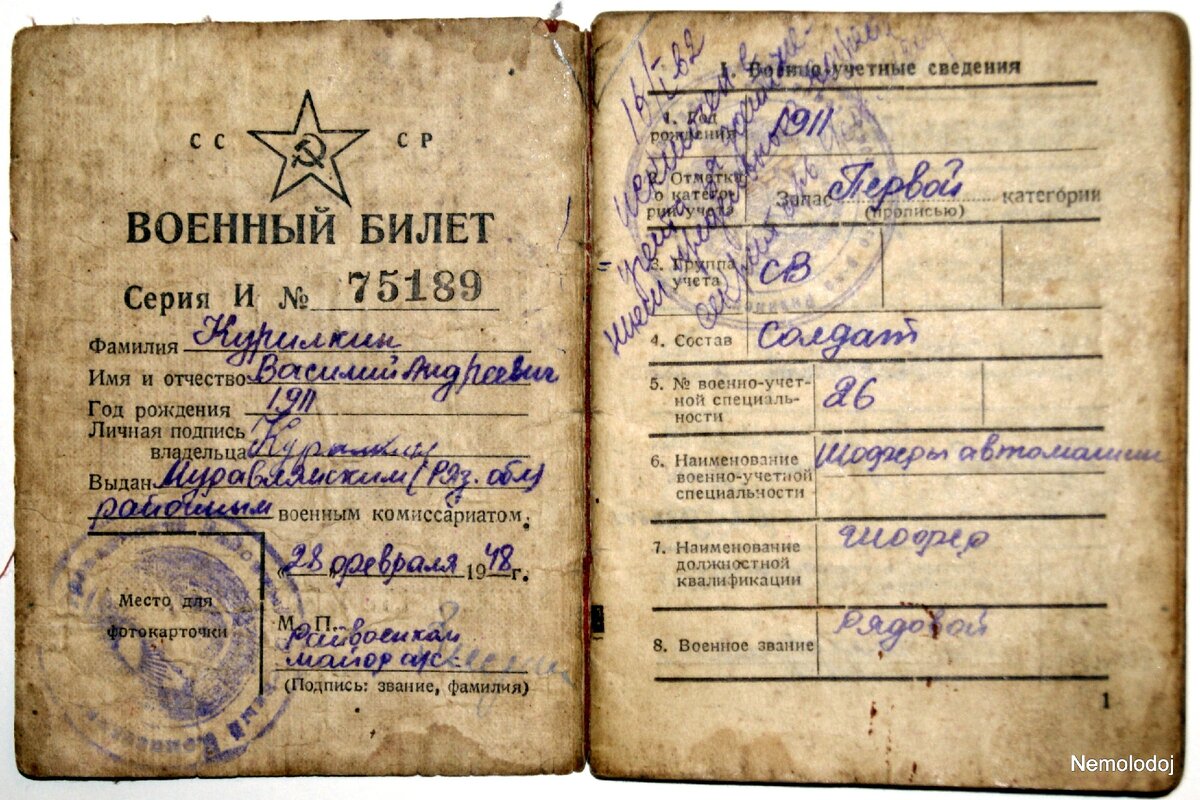 СС СР
ВОЕННЫЙ БИЛЕТ
Серия И № 75189
Фамилия Курилкин
Имя и отчество Василий Андреевич
Год рождения 1911
Личная подпись
владельца Курилкин
Выдан Муравлянским (Ряз. обл)
районным военным комиссариатом.
"28" февраля 1948 г.
Место для
фотокарточки
М. П.
Райвоенком
майор
(Подпись: звание, фамилия)
14/I-62
исключен с
учета
I. Военно-учетные сведения
1. Год
рождения 1911
2. Отметка
о катего-
рии учета Запас Первой категории
(прописью)
3. Группа
учета СВ
4. Состав Солдат
5. № военно-учет-
ной специаль-
ности 26
6. Наименование
военно-учетной
специальности Шоферы автомашин
7. Наименование
должностной
квалификации Шофер
8. Военное звание Рядовой
1
Nemolodoj